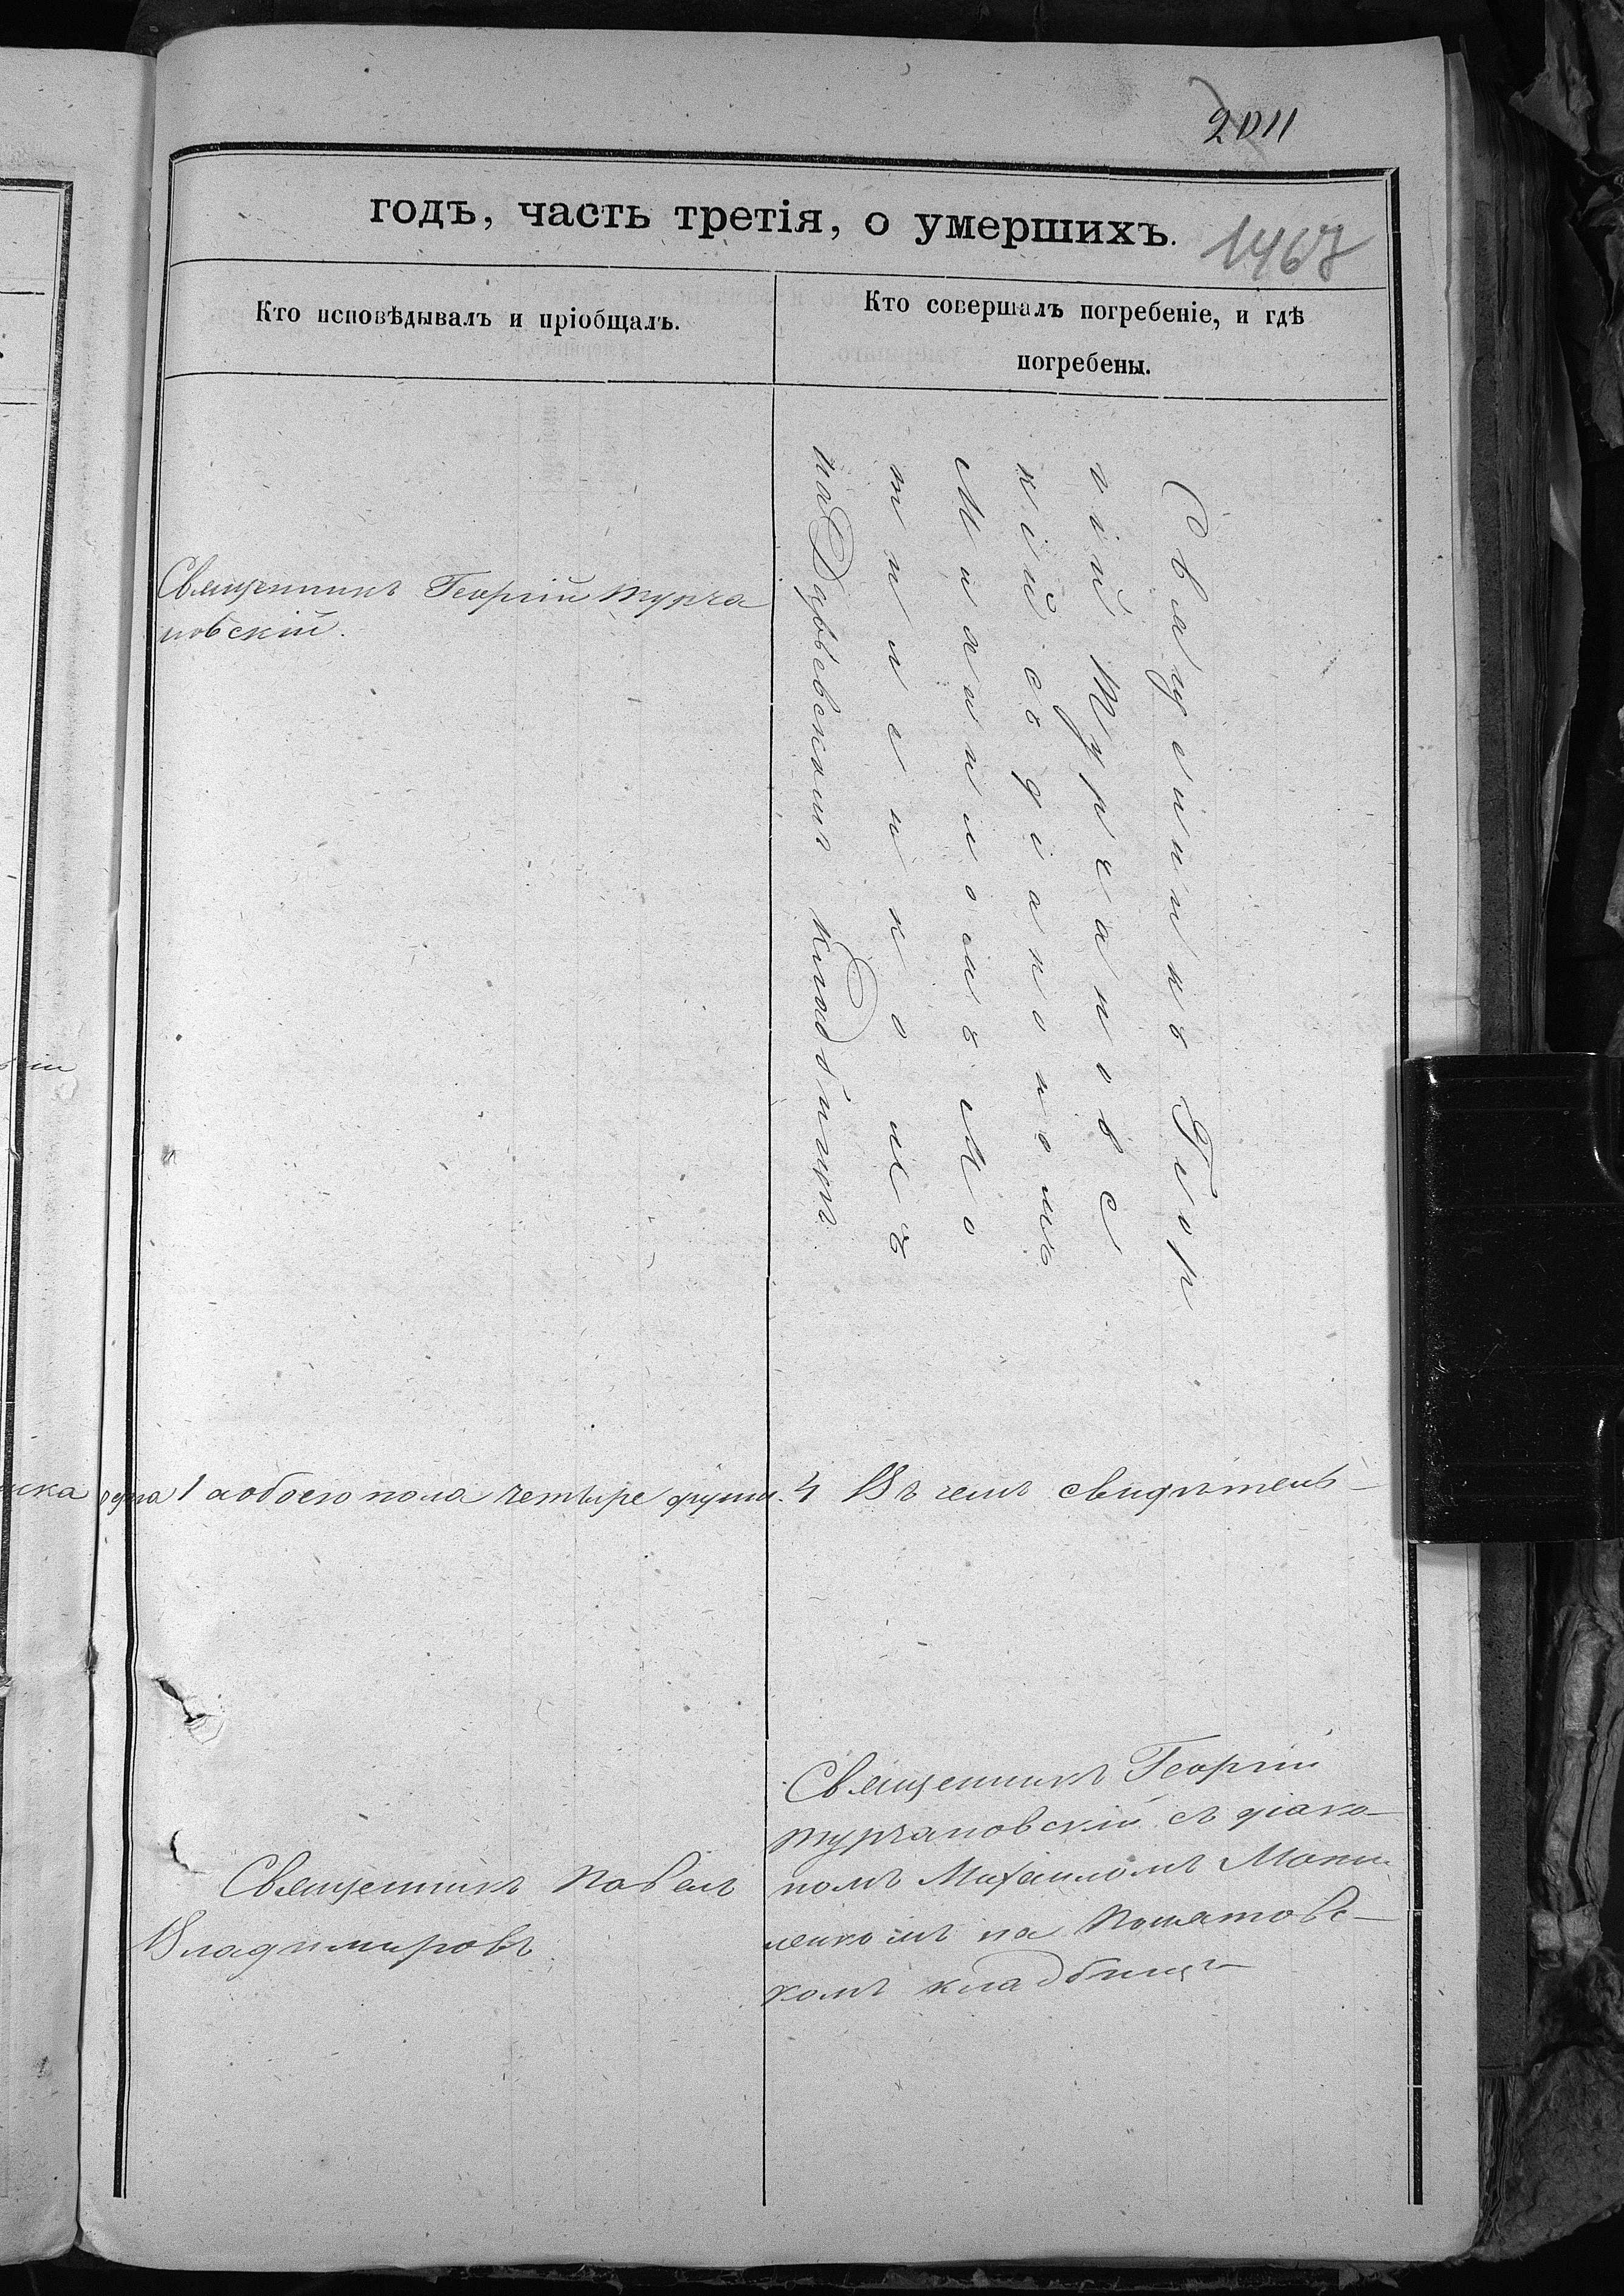 2011
годъ, часть третія, о умершихъ.
1467
Кто исповѣдывалъ и пріобщалъ.
Кто совершалъ погребеніе, и гдѣ
погребены.
Священникъ Георгій Турча
новскій.
Священникъ Геор
гій Турчановс
кій съ діакономъ
Михаиломъ Мо
кладбищѣ
1 а обоего пола четыре души. 4 Въ чемъ свидѣтель-
Священникъ Павелъ
Владимировъ
Священникъ Георгій
Турчановскій съ діако-
номъ Михаиломъ
на
комъ кладбищѣ